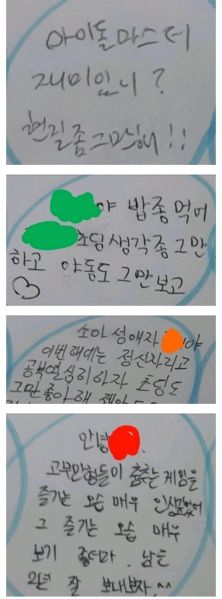 아이돌마스터
재미있니?
현질좀그만해!!
야 밥좀먹어
초딩생각좀그만
하고 야동도그만보고
소아성애자 야
이번해에는 정신차리고
공부열심히하자 초딩도
그만좋아해
안녕
고꾸만형들이 춤추는 게임을
즐기는 모습 매우 인상깊었어
그 즐기는 모습 매우
보기 좋더라. 남은
2년 잘 보내보자 ^^